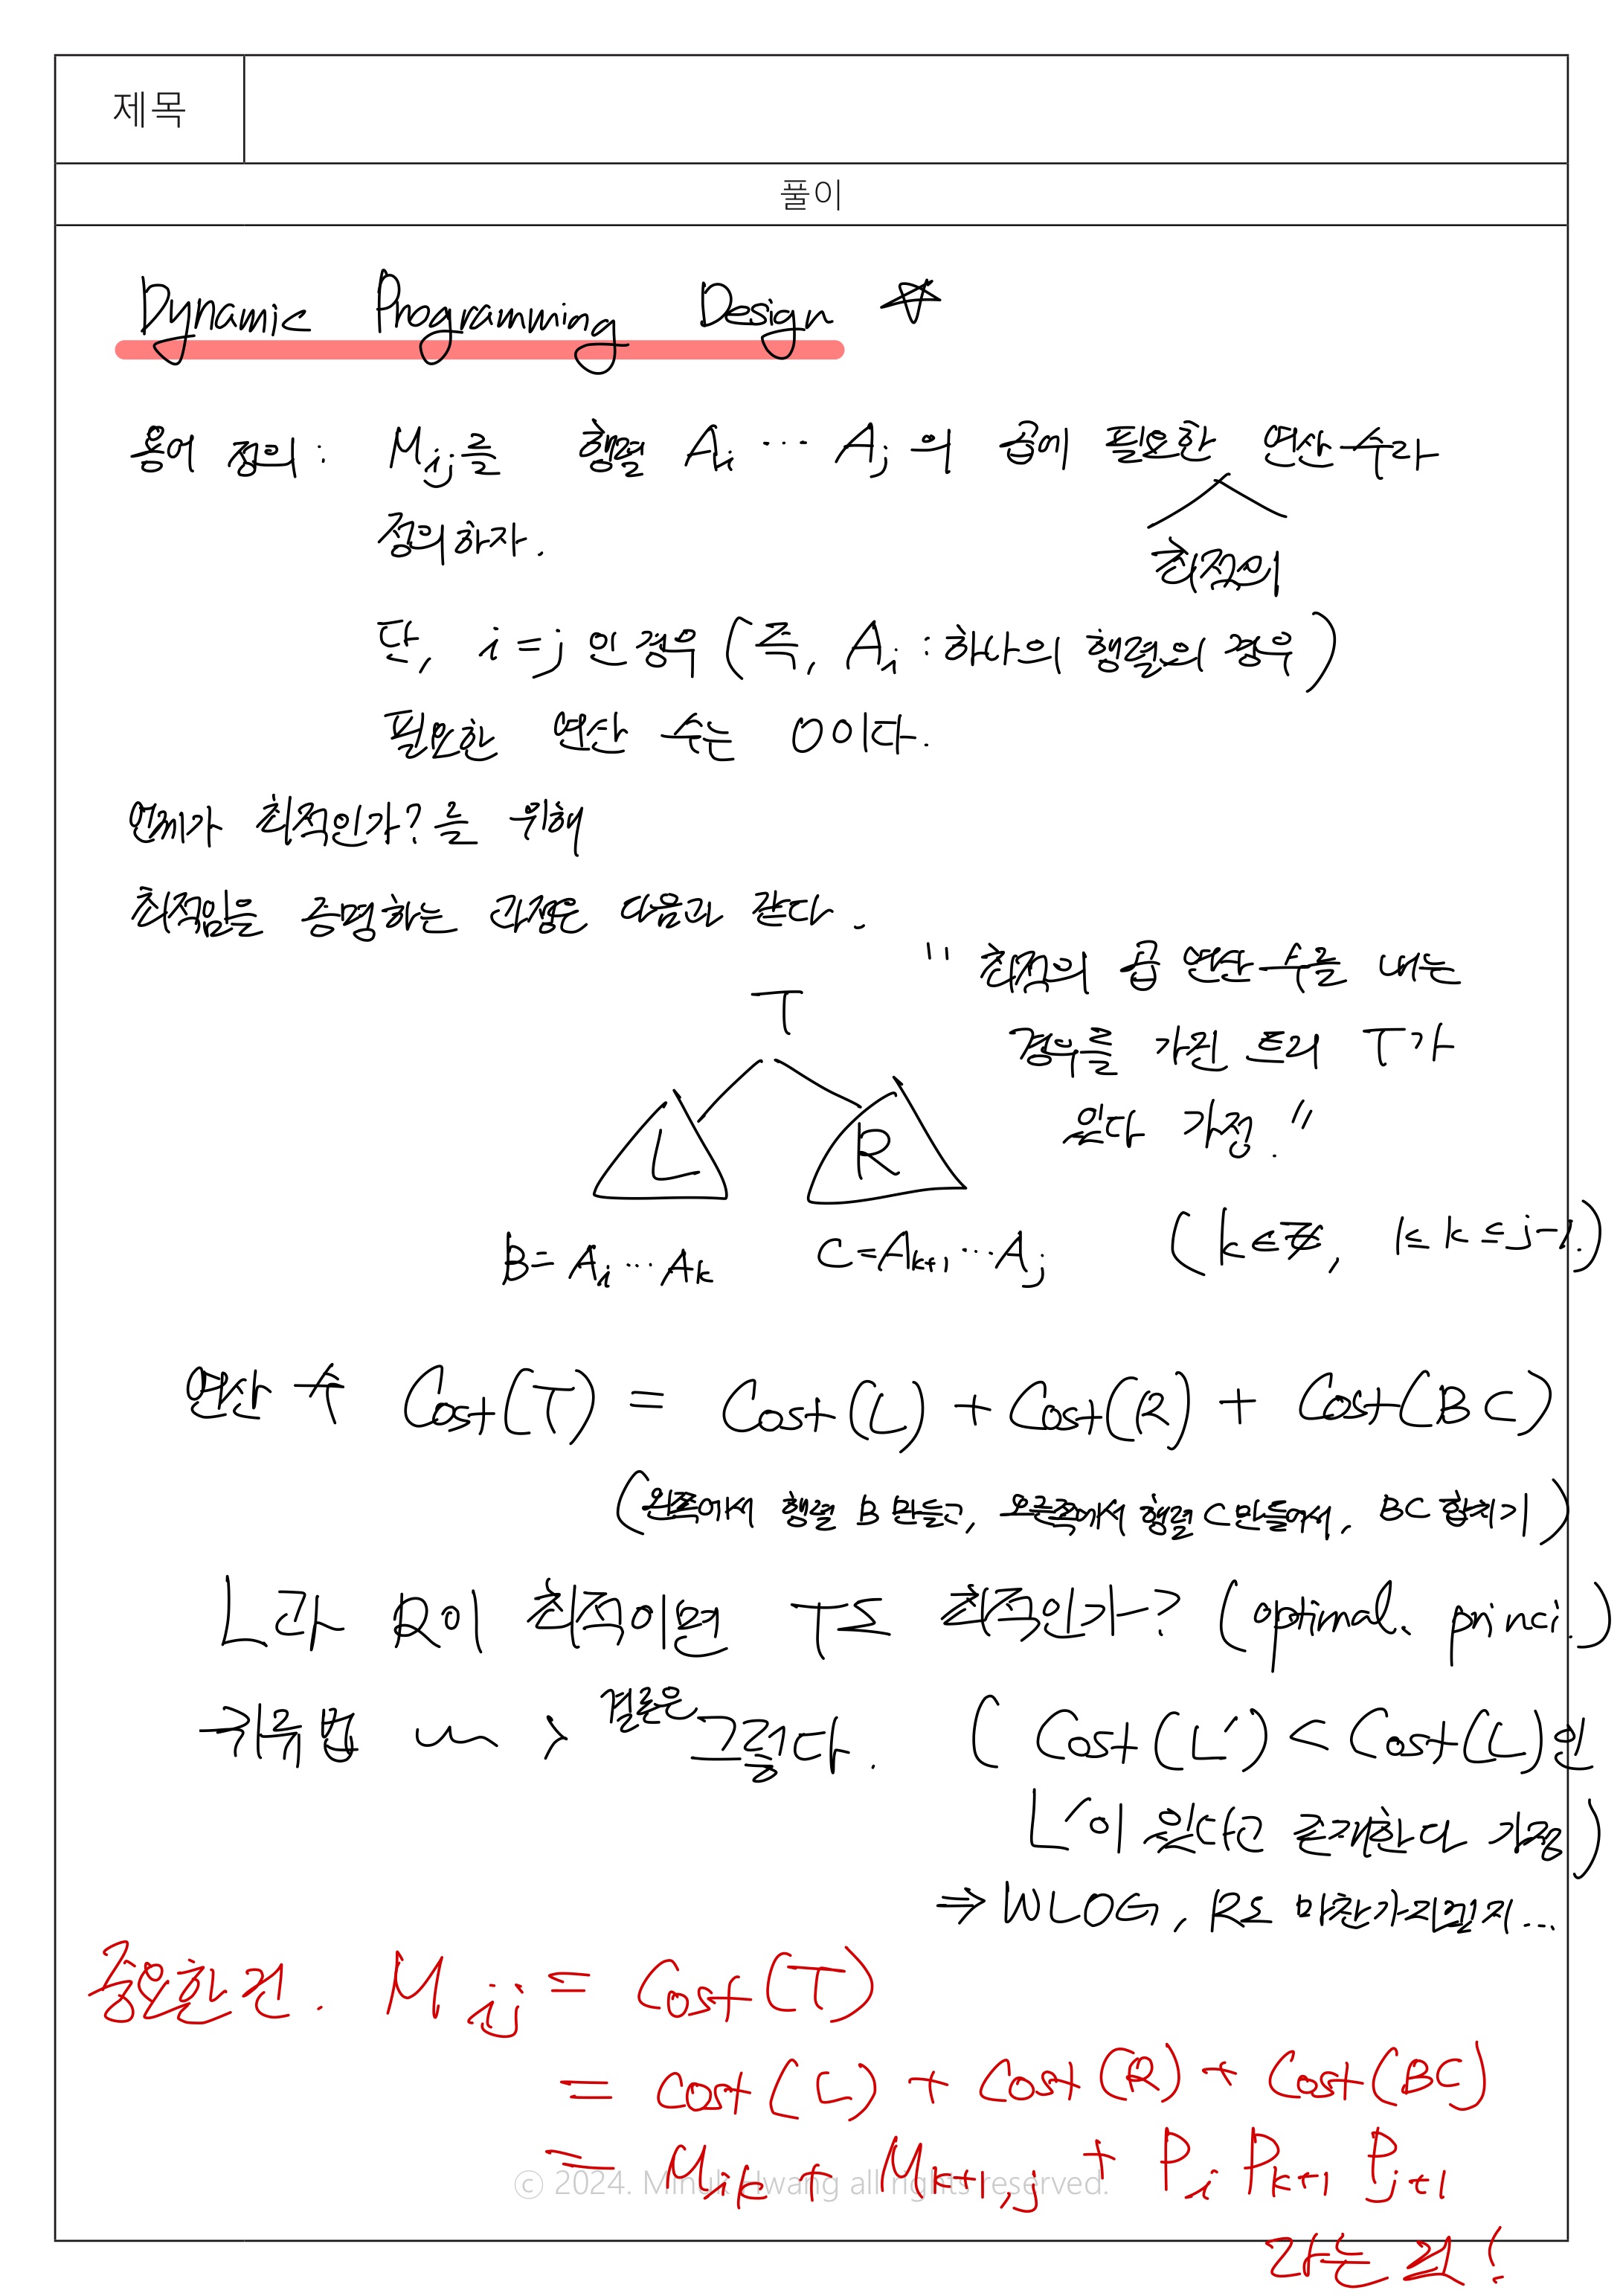 제목
풀이
Dynamic Programming Design ☆
용어 정의 : Mij를 행렬 Ai ⋯ Aj의 곱에 필요한 연산 수라
최적의
정의하자.
단, i=j 인 경우 (즉, Ai : 하나의 행렬의 경우)
필요한 연산 수는 0이다.
언제가 최적인가? 를 위해
최적임을 증명하는 과정은 다음과 같다.
" 최적의 곱 연산 수를 내는
경우를 가진 트리 T가
있다 가정."
T
L R
B = Ai ⋯ Ak C = Ak+1 ⋯ Aj (k∈ℤ, 1≤ k ≤ j-1.)
연산 수 Cost(T) = Cost(L) + Cost(R) + Cost(BC)
(왼쪽에서 행렬 B 만들고, 오른쪽에서 행렬 C 만들어서, BC 합치기)
L과 R이 최적이면 T도 최적인가? (optimal. princi.)
귀류법 ~> 결론은 그렇다. ( Cost(L′) < Cost(L)인
L′이 있다고 존재한다 가정)
⇒ WLOG, R도 마찬가지겠지...
중요한 건. Mij = Cost(T)
= Cost(L) + Cost(R) + Cost(BC)
= Mik + Mk+1,j + Pi Pk+1 Pj+1
라는 것!
© 2024. Minuk Hwang all rights reserved.